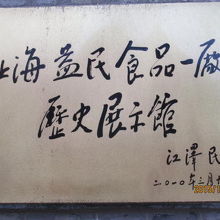 上海益民食品一廠
歷史展示館
江澤民
二〇一〇年二月